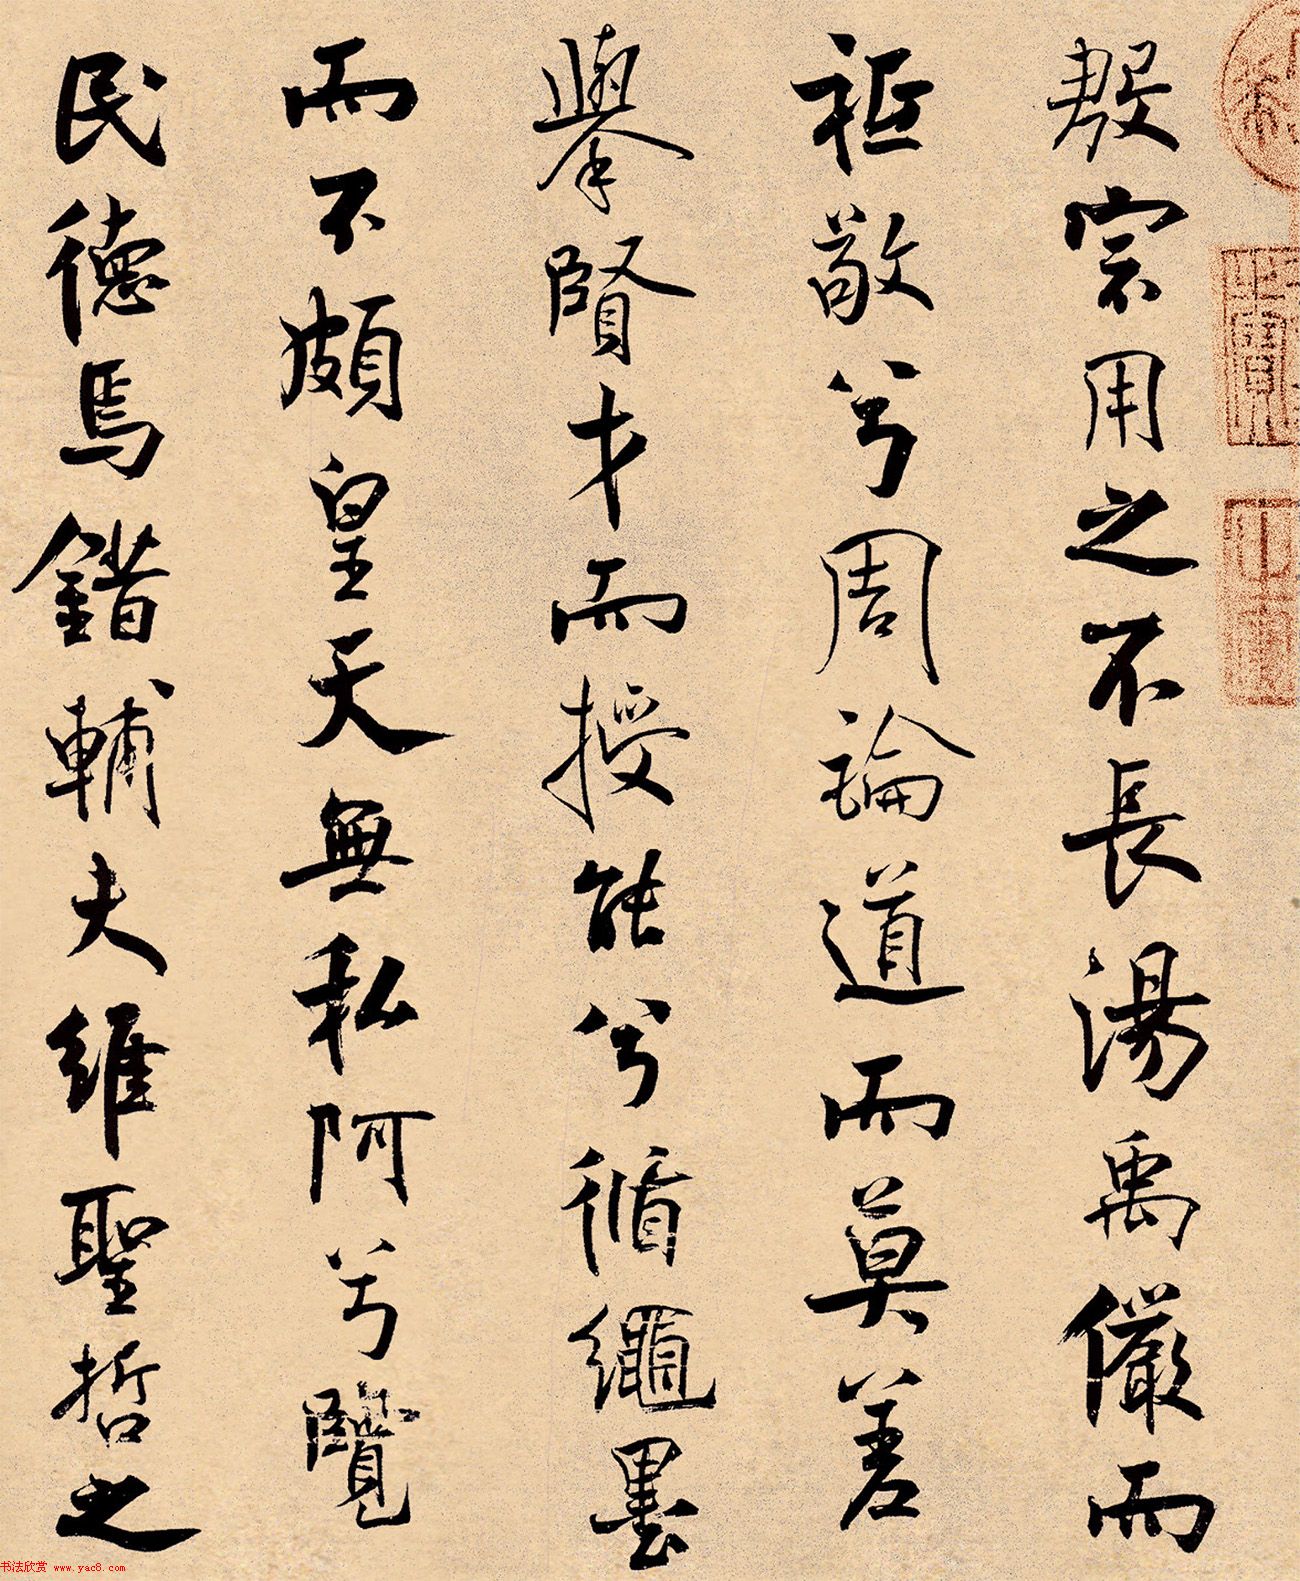 殷宗用之不長湯禹儼而
祗敬兮周論道而莫差
舉賢才而授能兮循繩墨
而不頗皇天無私阿兮覽
民德焉錯輔夫維聖哲之
书法欣赏 www.yac8.com